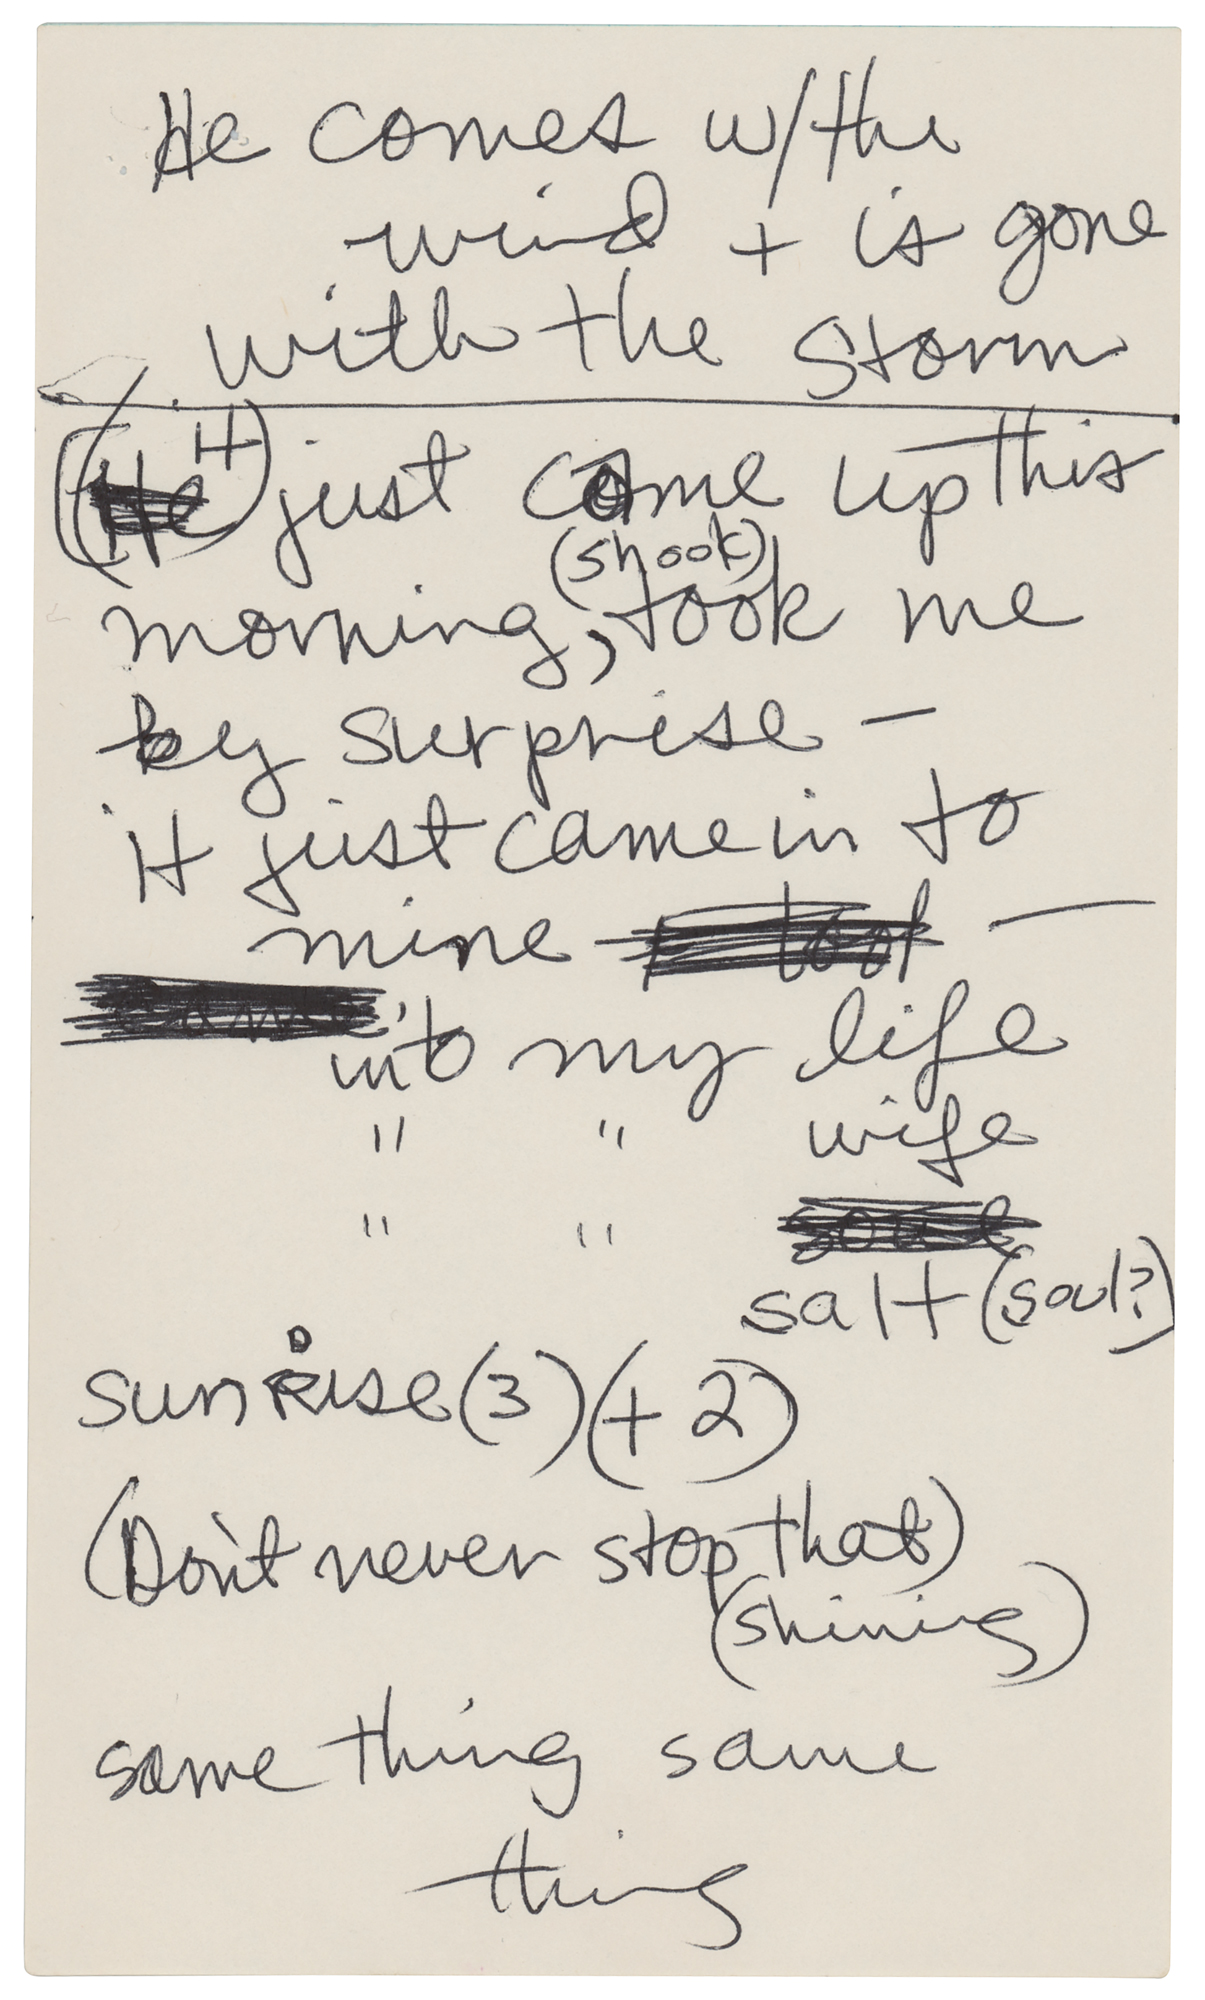 He comes w/the
wind + is gone
with the storm
(He It) just came up this
(shook)
morning, took me
by surprise —
it just came in to
mine took —
into my life
" " wife
" " soul
salt (soul?)
sunrise (3) (+ 2)
(Don't never stop that)
(shining)
same thing same
thing